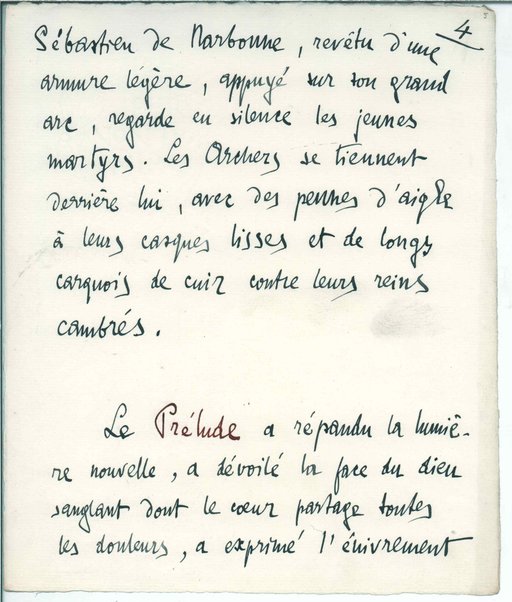 4
Sébastien de Narbonne, revêtu d'une
armure légère, appuyé sur son grand
arc, regarde en silence les jeunes
martyrs. Les Archers se tiennent
derrière lui, avec des pennes d'aigle
à leurs casques lisses et de longs
carquois de cuir contre leurs reins
cambrés.
Le Prélude a répandu la lumiè-
re nouvelle, a dévoilé la face du dieu
sanglant dont le cœur partage toutes
les douleurs, a exprimé l'énivrement